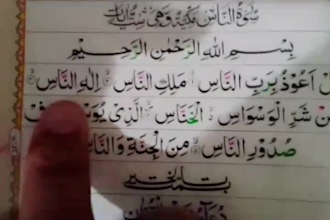 سُوْرَةُ النَّاسِ مَكِّيَّةٌ وَهِيَ سِتُّ اٰيَاتٍ
بِسْمِ اللهِ الرَّحْمٰنِ الرَّحِيْمِ
اَعُوْذُ بِرَبِّ النَّاسِ مَلِكِ النَّاسِ اِلٰهِ النَّاسِ
مِنْ شَرِّ الْوَسْوَاسِ الْخَنَّاسِ الَّذِيْ
صُدُوْرِ النَّاسِ مِنَ الْجِنَّةِ وَالنَّاسِ